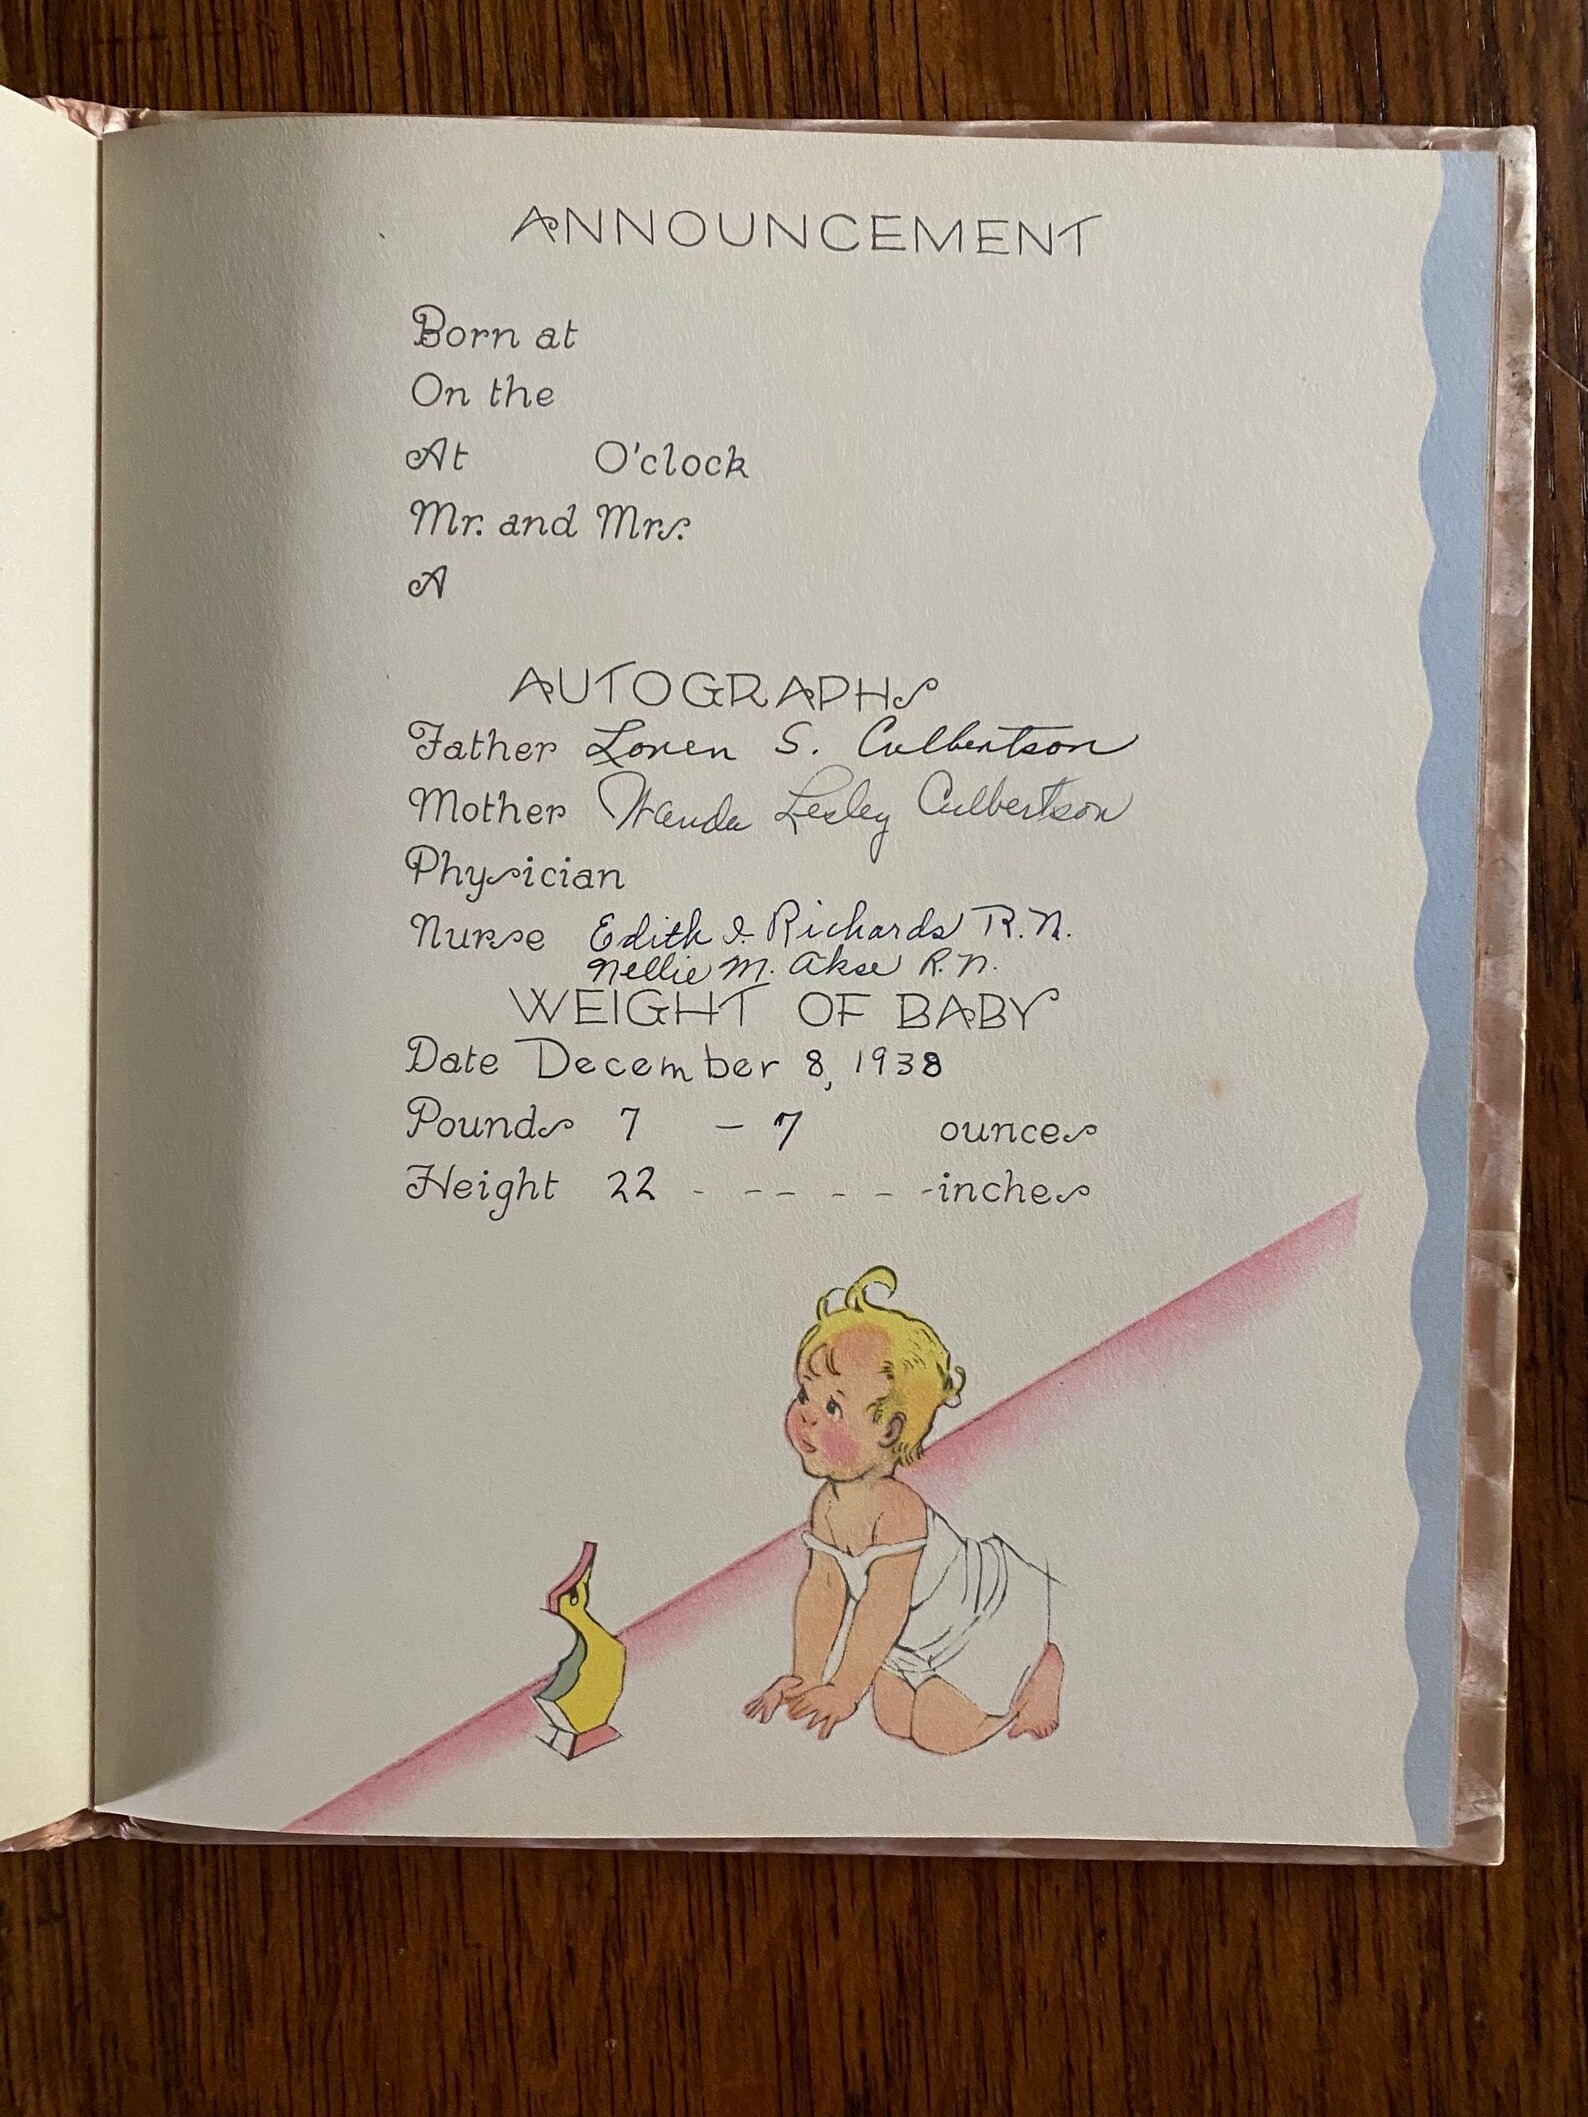 ANNOUNCEMENT
Born at
On the
At O'clock
Mr. and Mrs.
A
AUTOGRAPHS
Father Loren S. Culbertson
Mother Wanda Lesley Culbertson
Physician
Nurse Edith I. Richards R.N.
Nellie M. Akse R.N.
WEIGHT OF BABY
Date December 8, 1938
Pounds 7 – 7 ounces
Height 22 - - - - - - - inches